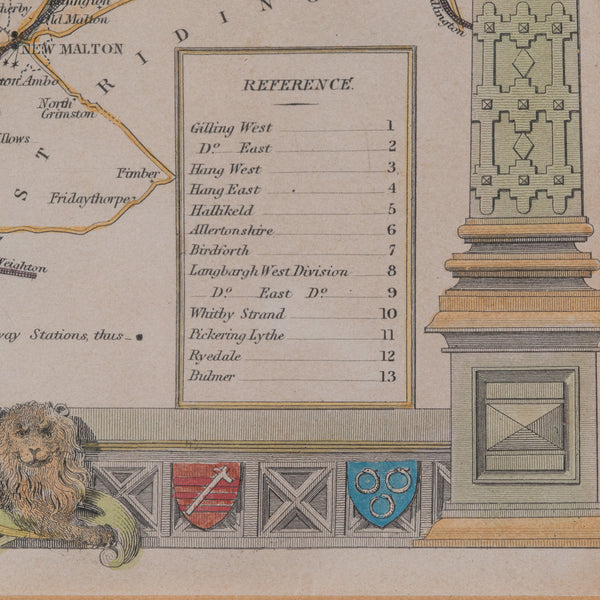 Old Malton
NEW MALTON
RIDING
North
Grimston
ST
Fimber
Fridaythorpe
Weighton
way Stations, thus
REFERENCE.
Gilling West 1
Do. East 2
Hang West 3
Hang East 4
Hallikeld 5
Allertonshire 6
Birdforth 7
Langbargh West Division 8
Do. East Do. 9
Whitby Strand 10
Pickering Lythe 11
Ryedale 12
Bulmer 13